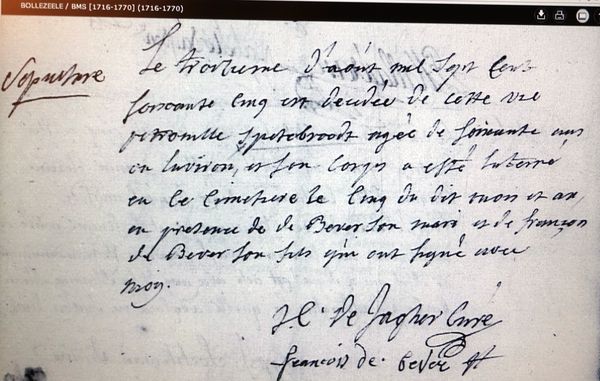 BOLLEZEELE / BMS [1716-1770] (1716-1770)
Sepulture
Le troisieme d'aout mil sept cent
soixante cinq est decedée de cette vie
petronille Spetebroodt agée de soixante ans
ou environ, et son corps a esté interré
en ce cimetiere le cinq du dit mois et an,
en presence de de Bever son mari et de françois
de Bever son fils qui ont signé avec
moy.
De Jagher Curé
francois de bever